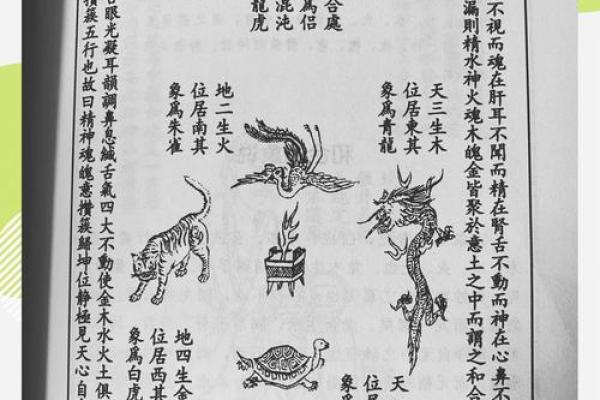 不視而魂在肝耳不聞而精在腎舌不動而神在心鼻不
漏則精水神火魂木魄金皆聚於意土之中而謂之和合
合處
爲侶
混沌
龍虎
天三生木
位居東其
象爲青龍
地二生火
位居南其
象爲朱雀
天
位居
象爲
地四生金
位居西其
象爲白虎
含眼光凝耳韻調鼻息緘舌氣四大不動使金木水火土俱
攢簇五行也故曰精神魂魄意攢簇歸坤位靜極見天心自